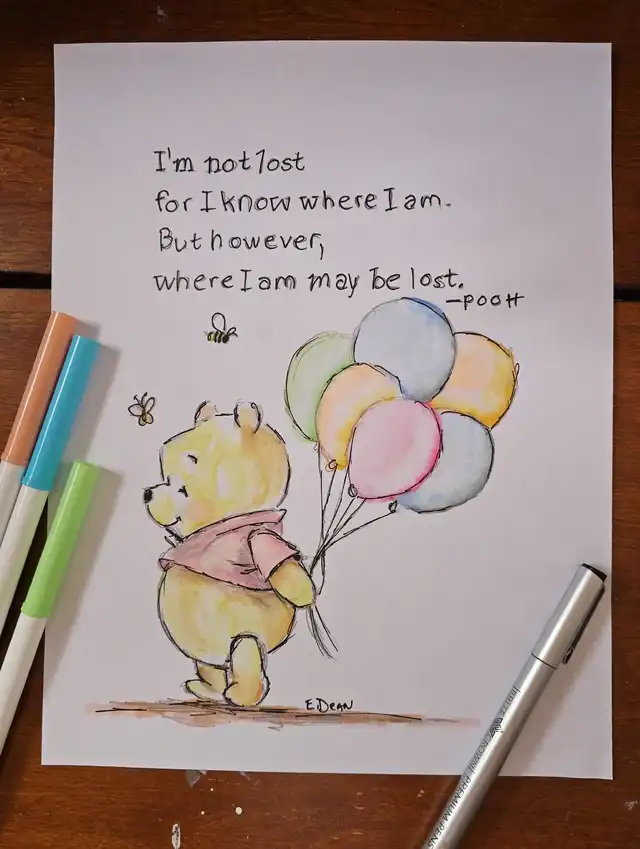 I'm not lost
for I know where I am.
But however,
where I am may be lost.
-POOH
E.DEAN
PREMIUM PENS